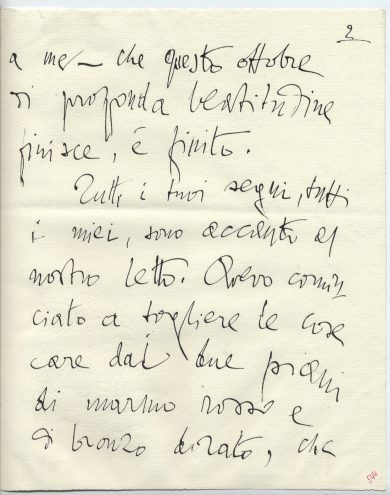 2
a me – che questo ottobre
di profonda beatitudine
finisce, è finito.
Tutti i tuoi segni, tutti
i miei, sono accanto al
nostro letto. Avevo comin
ciato a togliere le cose
care dai due piani
di marmo rosso e
di bronzo dorato, che
544